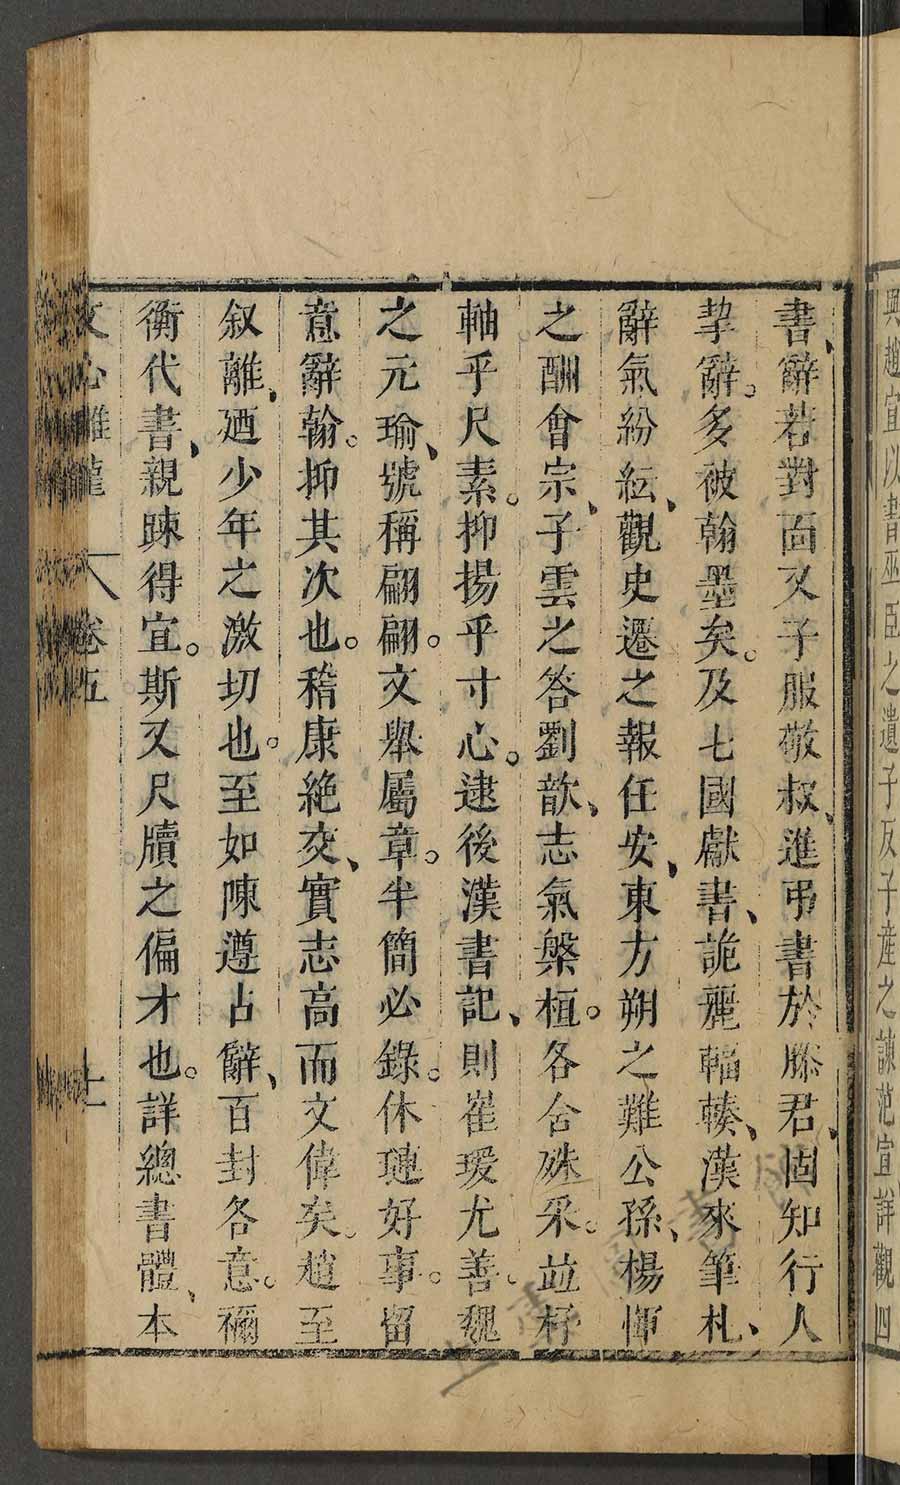 興趙宣以書巫臣之遺子反子產之諫范宣詳觀四
書、辭若對面又子服敬叔、進弔書於滕君、固知行人
挈辭。多被翰墨矣。及七國獻書、詭麗輻輳、漢來筆札、
辭氣紛紜、觀史遷之報任安、東方朔之難公孫、楊惲
之酬會宗、子雲之答劉歆、志氣槃桓。各含殊采。並杼
軸乎尺素。抑揚乎寸心。逮後漢書記、則崔瑗尤善。魏
之元瑜、號稱翩翩。文舉屬章。半簡必錄。休璉好事。留
意辭翰。抑其次也。嵇康絶交、實志高而文偉矣。趙至
叙離、廼少年之激切也。至如陳遵占辭、百封各意。禰
衡代書、親踈得宜。斯又尺牘之偏才也。詳總書體、本
文心雕龍 卷五 十